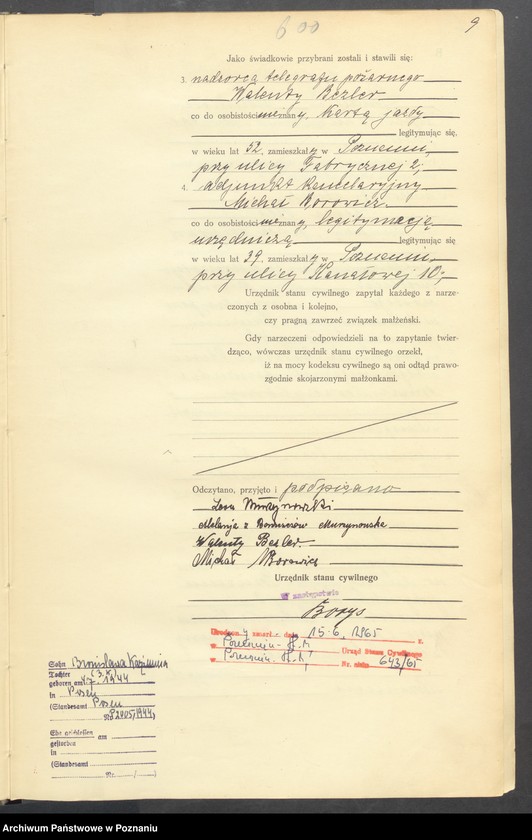 600
9
Jako świadkowie przybrani zostali i stawili się:
3. nadzorca telegrafu pożarnego
Walenty Bezler
co do osobistości nieznany, kartą jazdy
legitymując się,
w wieku lat 52, zamieszkały w Poznaniu,
przy ulicy Fabrycznej 2;
4. adjunkt kancelaryjny
Michał Borowicz
co do osobistości nieznany, legitymacją
urzędniczą legitymując się
w wieku lat 39, zamieszkały w Poznaniu,
przy ulicy Kanałowej 10;
Urzędnik stanu cywilnego zapytał każdego z narze-
czonych z osobna i kolejno,
czy pragną zawrzeć związek małżeński.
Gdy narzeczeni odpowiedzieli na to zapytanie twier-
dząco, wówczas urzędnik stanu cywilnego orzekł,
iż na mocy kodeksu cywilnego są oni odtąd prawo-
zgodnie skojarzonymi małżonkami.
Odczytano, przyjęto i podpisano
Murzynowski
Melanja z Murzynowska
Walenty Bezler
Michał Borowicz
Urzędnik stanu cywilnego
W zastępstwie
Borys
zmarł dnia 15.6.1965 r.
w Poznaniu
w Poznaniu Urząd Stanu Cywilnego
Nr. aktu 643/65
Sohn Bronisława Kazimiera
Tochter
geboren am 1944
in Posen
(Standesamt Posen
Nr 2005/1944)
Ehe geschlossen am
gestorben
in
(Standesamt
Nr. / )
Archiwum Państwowe w Poznaniu